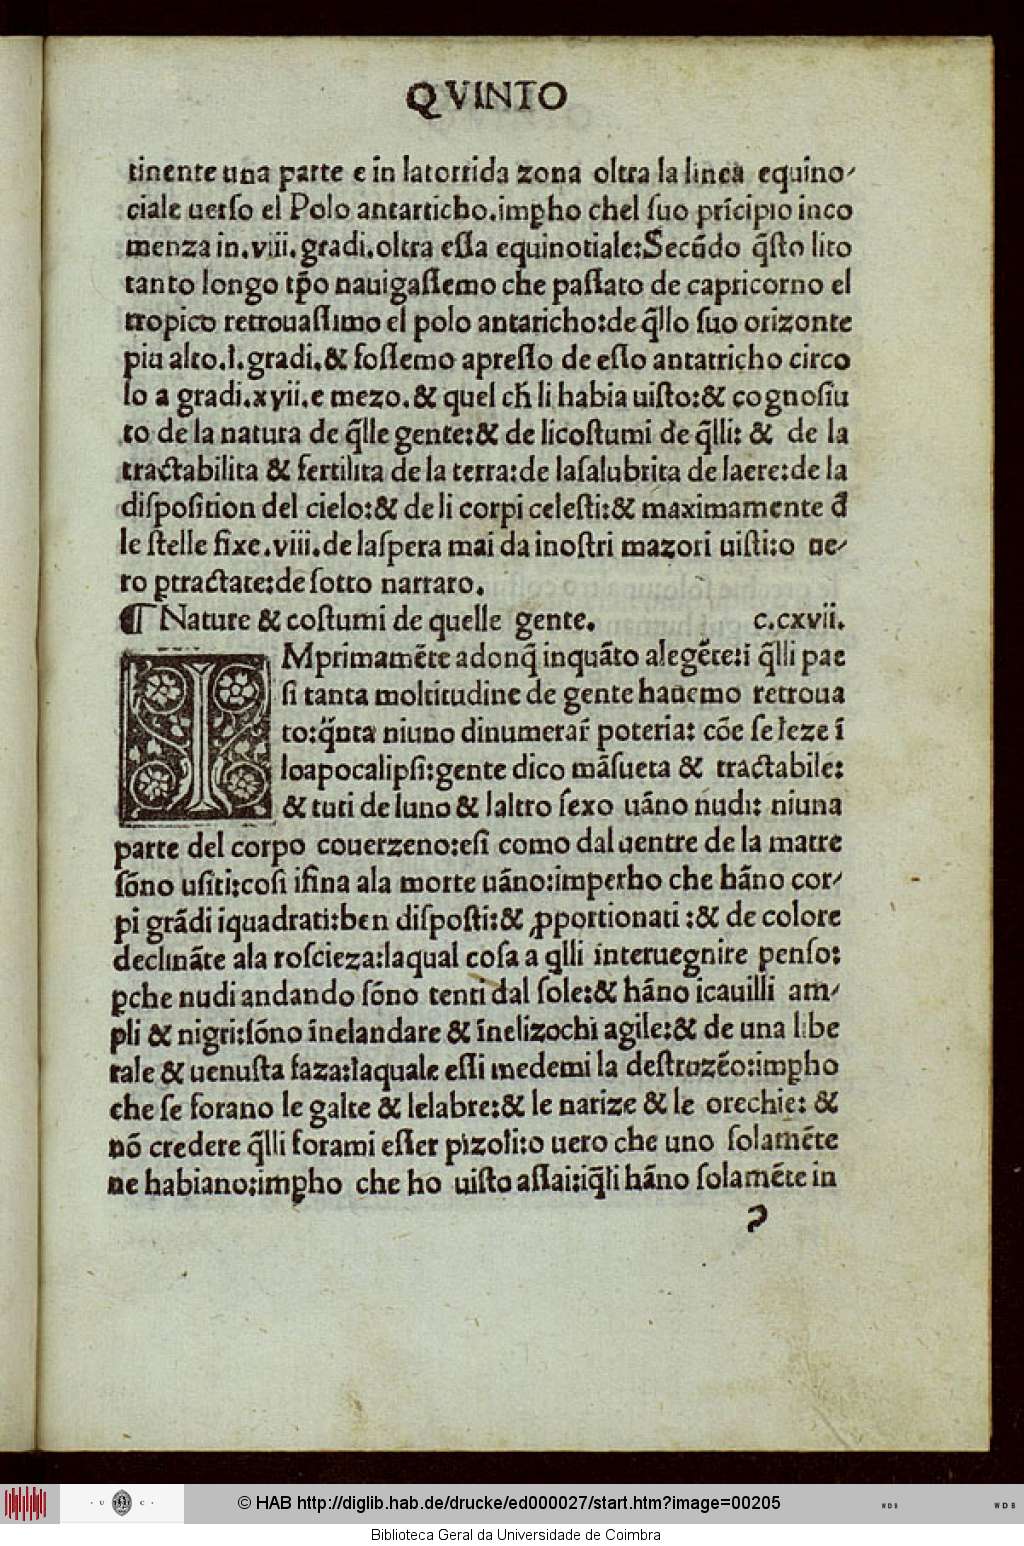 QVINTO
tinente una parte e in latorrida zona oltra la linea equino-
ciale uerso el Polo antarticho.imꝑho chel suo prĩcipio inco
menza in.viii.gradi.oltra essa equinotiale:Secũdo q̃sto lito
tanto longo tp̃o nauigassemo che passato de capricorno el
tropico retrouassimo el polo antaricho:de q̃llo suo orizonte
piu alto.l.gradi.& fossemo apresso de esso antatricho circo
lo a gradi.xvii.e mezo.& quel ch̃ li habia uisto:& cognosiu
to de la natura de q̃lle gente:& de licostumi de q̃lli: & de la
tractabilita & fertilita de la terra:de lasalubrita de laere:de la
disposition del cielo:& de li corpi celesti:& maximamente d̃
le stelle fixe.viii.de laspera mai da inostri mazori uisti:o ue-
ro ꝑtractate:de sotto narraro.
¶ Nature & costumi de quelle gente. c.cxvii.
IMprimamẽte adonq̃ inquãto alegẽte:ĩ q̃lli pae
si tanta moltitudine de gente hauemo retroua
to:q̃nta niuno dinumerar̃ poteria: cõe se leze ĩ
loapocalipsi:gente dico mãsueta & tractabile:
& tuti de luno & laltro sexo uãno nudi: niuna
parte del corpo couerzeno:esi como dal uentre de la matre
sõno usiti:cosi ifina ala morte uãno:imperho che hãno cor-
pi grãdi iquadrati:ben disposti:& ꝓportionati :& de colore
declinãte ala roscieza:laqual cosa a q̃lli interuegnire penso:
ꝑche nudi andando sõno tenti dal sole:& hãno icauilli am-
pli & nigri:sõno ĩnelandare & ĩnelizochi agile:& de una libe
rale & uenusta faza:laquale essi medemi la destruzẽo:imꝑho
che se forano le galte & lelabre:& le narize & le orechie: &
nõ credere q̃lli forami esser pizoli:o uero che uno solamẽte
ne habiano:imꝑho che ho uisto assai:iq̃li hãno solamẽte in
?
· U C ·
© HAB http://diglib.hab.de/drucke/ed000027/start.htm?image=00205
WDB
WDB
Biblioteca Geral da Universidade de Coimbra